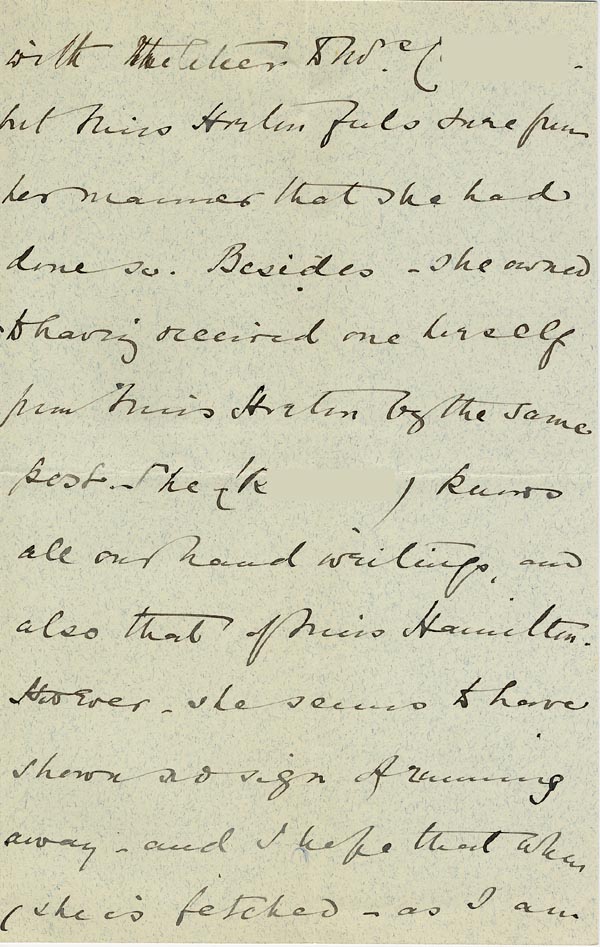 with the letter to Nd. (
but Miss Horton feels sure from
her manner that she had
done so. Besides - she owned
to having received one herself
from Miss Horton by the same
post. - She (K ) knows
all our hand writings, and
also that of Miss Hamilton.
However - she seems to have
shown no sign of running
away - and I hope that when
(she is fetched - as I am